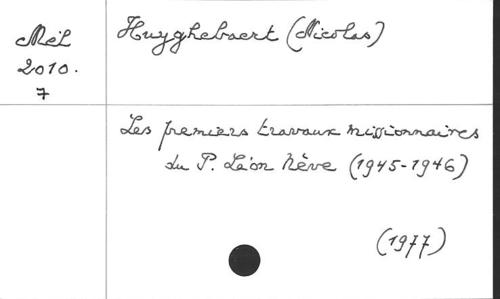 Mél
2010.
7
Huyghebaert (Nicolas)
Les premiers travaux missionnaires
du P. Léon Nève (1945-1946)
(1977)